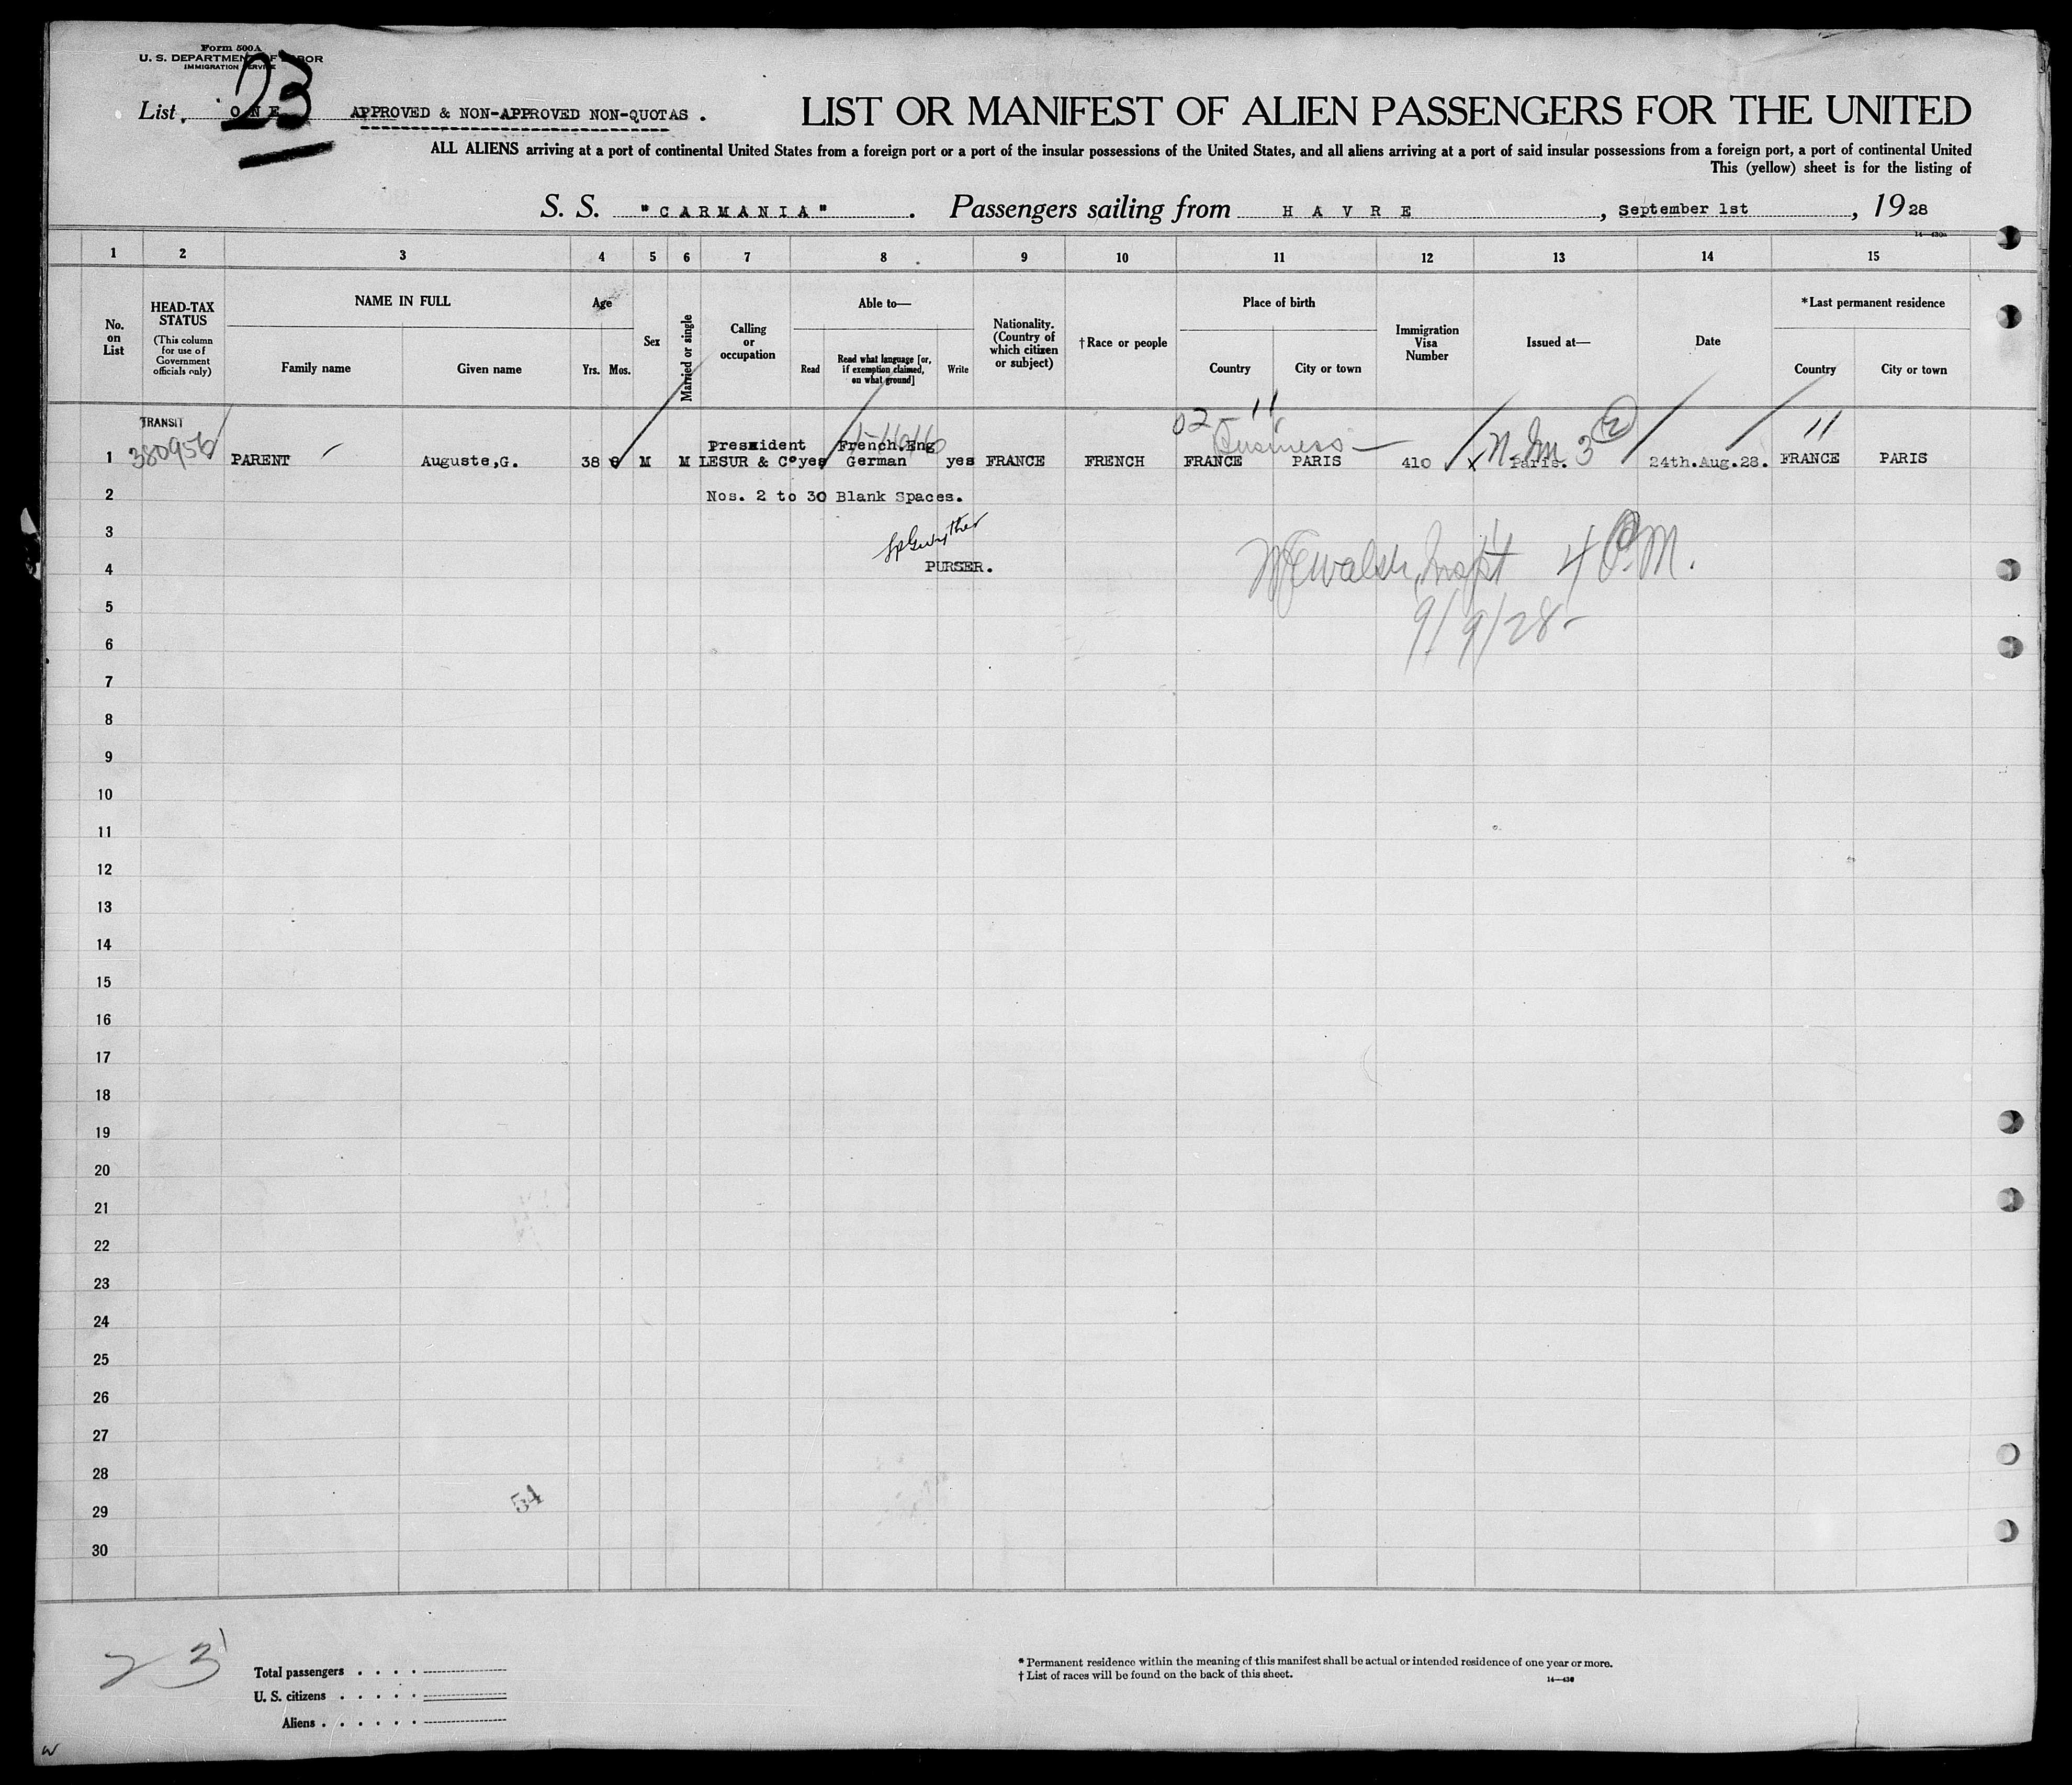 Form 500A
U. S. DEPARTMENT OF LABOR
IMMIGRATION SERVICE
List ONE 23 APPROVED & NON-APPROVED NON-QUOTAS.
LIST OR MANIFEST OF ALIEN PASSENGERS FOR THE UNITED
ALL ALIENS arriving at a port of continental United States from a foreign port or a port of the insular possessions of the United States, and all aliens arriving at a port of said insular possessions from a foreign port, a port of continental United
This (yellow) sheet is for the listing of
S. S. "CARMANIA". Passengers sailing from HAVRE, September 1st, 1928
14—430a
1 2 3 4 5 6 7 8 9 10 11 12 13 14 15
No. on List
HEAD-TAX STATUS
(This column for use of Government officials only)
NAME IN FULL
Family name Given name
Age
Yrs. Mos.
Sex
Married or single
Calling or occupation
Able to—
Read
Read what language [or, if exemption claimed, on what ground]
Write
Nationality. (Country of which citizen or subject)
†Race or people
Place of birth
Country City or town
Immigration Visa Number
Issued at—
Date
*Last permanent residence
Country City or town
TRANSIT
02 - 11
Business
N Im 3 (2)
11
Presxident French.Eng
1 PARENT Auguste,G. 38 M M LESUR & Co yes German yes FRANCE FRENCH FRANCE PARIS 410 x Paris. 24th.Aug.28. FRANCE PARIS
2 Nos. 2 to 30 Blank Spaces.
3
4 PURSER.
Walsh, Inspt 4 P.M.
9/9/28
5
6
7
8
9
10
11
12
13
14
15
16
17
18
19
20
21
22
23
24
25
26
27
28
29 54
30
23
Total passengers
U. S. citizens
Aliens
* Permanent residence within the meaning of this manifest shall be actual or intended residence of one year or more.
† List of races will be found on the back of this sheet.
14—430
W